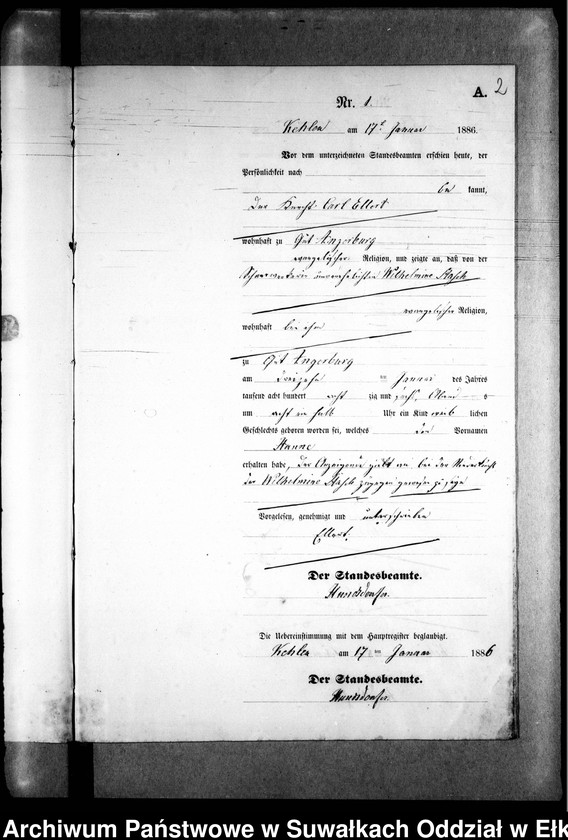 A. 2
Nr. 1.
Kehlen am 17t Januar 1886.
Vor dem unterzeichneten Standesbeamten erschien heute, der
Persönlichkeit nach
be kannt,
der Knecht Carl Ellert
wohnhaft zu Gut Angerburg
evangelischer Religion, und zeigte an, daß von der
unverehelichten Wilhelmine
evangelischer Religion,
wohnhaft bei ihm
zu Gut Angerburg
am dreizehn ten Januar des Jahres
tausend acht hundert acht zig und sechs Abend s
um acht ein halb Uhr ein Kind weib lichen
Geschlechts geboren worden sei, welches den Vornamen
Hanne
erhalten habe, der Anzeigende giebt an bei der Niederkunft
der Wilhelmine zugegen gewesen zu sein
Vorgelesen, genehmigt und unterschrieben
Ellert.
Der Standesbeamte.
Die Uebereinstimmung mit dem Hauptregister beglaubigt.
Kehlen am 17 ten Januar 1886
Der Standesbeamte.
Archiwum Państwowe w Suwałkach Oddział w Ełk